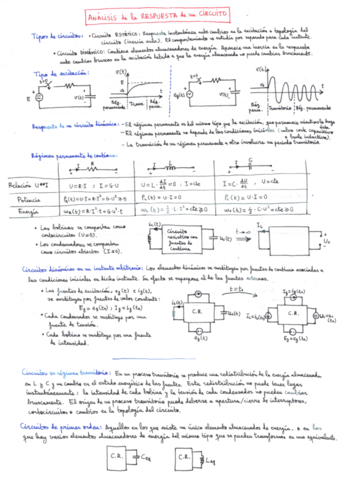 ANÁLISIS de la RESPUESTA de un CIRCUITO
Tipos de circuitos: • Circuito ESTÁTICO: Respuesta instantánea ante cambios en la excitación o topología del
circuito. El comportamiento se estudia por separado para cada instante.
• Circuito DINÁMICO: Contiene elementos almacenadores de energía. Aparece una inercia en la respuesta
ante cambios bruscos en la excitación debida a que la energía almacenada no puede cambiar bruscamente.
Tipo de excitación:
t=0
R
E
u(t)
u(t)
E
t
Rég. perm.
Trans.
Rég. perm.
t=0
R
eg(t)
u(t)
u(t)
t
Rég. perm.
Transitorio
Rég. permanente
Respuesta de un circuito dinámico: - El régimen permanente es del mismo tipo que la excitación, que permanece mientras la haya
- El régimen permanente no depende de las condiciones iniciales
- La transición de un régimen permanente a otro involucra un periodo transitorio
Régimen permanente de continua:
Relación U↔I
U=R·I ; I=G·U
U=L·di/dt=0 ; I=cte
I=C·du/dt ; U=cte
Potencia
P(t)=U·I=R·I²=G·U²≥0
P(t)=U·I=0
P(t)=U·I=0
Energía
w(t)=½·L·I²=cte≥0
w(t)=½·C·U²=cte≥0
• Las bobinas se comportan como
cortocircuitos (U=0).
• Los condensadores se comportan
como circuitos abiertos (I=0).
Circuito
resistivo con
fuentes de
continua
t→∞
Circuitos dinámicos en un instante arbitrario: Los elementos dinámicos se sustituyen por fuentes de continua asociadas a
las condiciones iniciales en dicho instante. En efecto se superpone al de las fuentes externas.
• Las fuentes de excitación, eg(t) e ig(t),
se sustituyen por fuentes de valor constante:
Eg=eg(t₁) ; Ig=ig(t₁)
• Cada condensador se sustituye por una
fuente de tensión.
• Cada bobina se sustituye por una fuente
de intensidad.
C.R.
t=t₁
C.R.
Circuitos en régimen transitorio: En un proceso transitorio se produce una redistribución de la energía almacenada
en L y C y un cambio en el estado energético de las fuentes. Esta redistribución no puede tener lugar
instantáneamente: la intensidad de cada bobina y la tensión de cada condensador no pueden cambiar
bruscamente. El origen de un proceso transitorio puede deberse a apertura/cierre de interruptores,
cortocircuitos o cambios en la topología del circuito.
Circuitos de primer orden: Aquellos en los que existe un único elemento almacenador de energía, o en los
que hay varios elementos almacenadores de energía del mismo tipo que se pueden transformar en uno equivalente.
C.R.
Ceq
C.R.
Leq